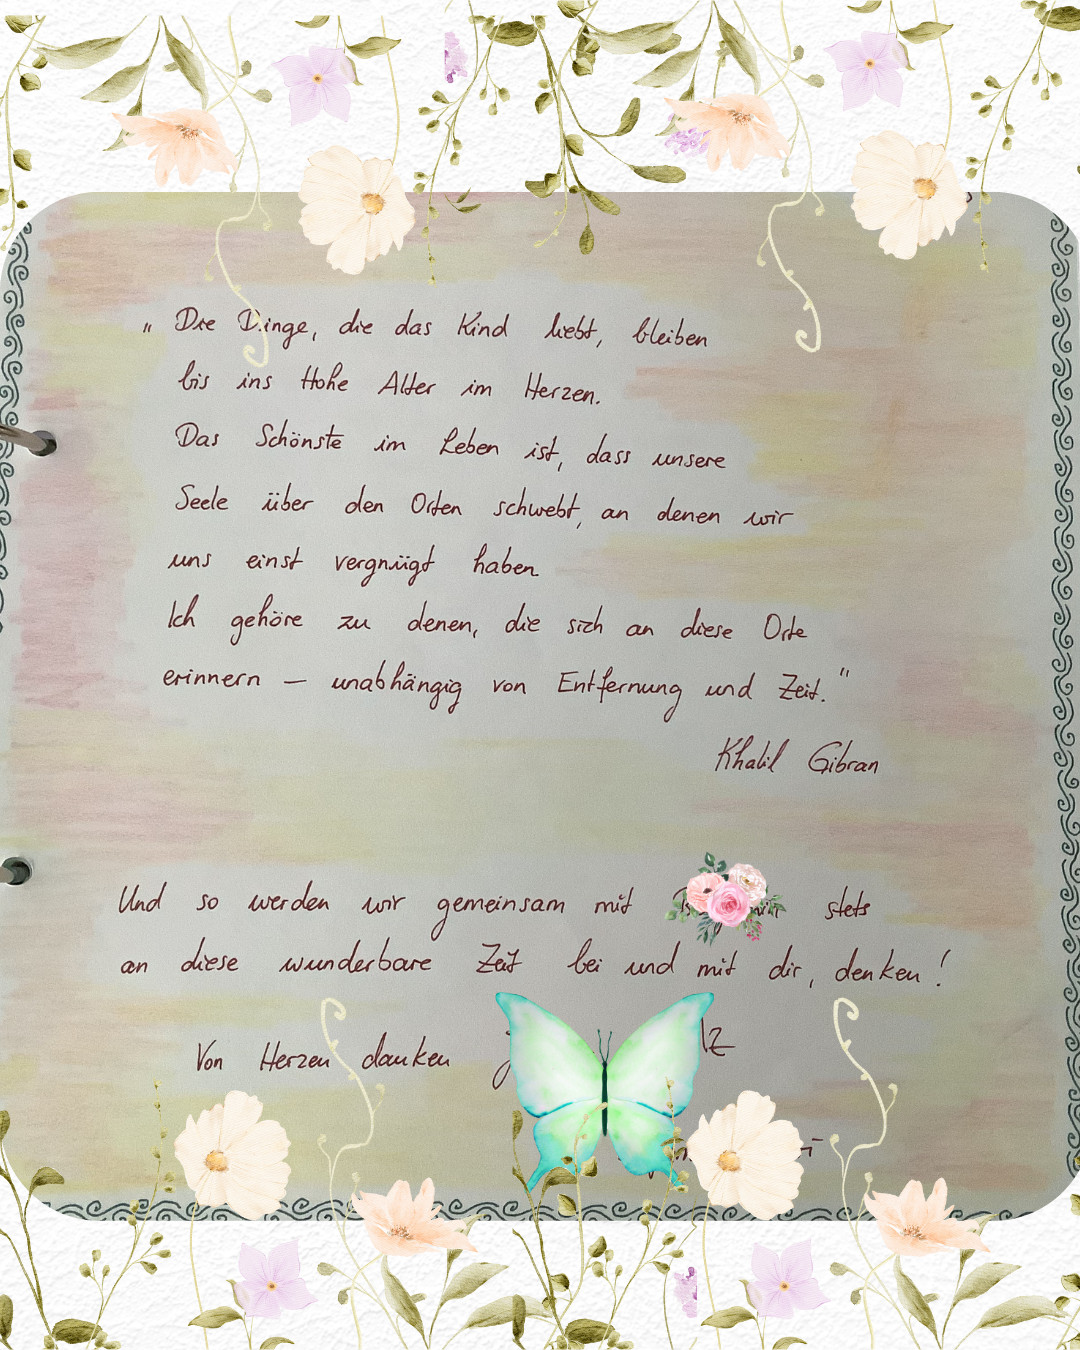 " Die Dinge, die das Kind liebt, bleiben
bis ins Hohe Alter im Herzen.
Das Schönste im Leben ist, dass unsere
Seele über den Orten schwebt, an denen wir
uns einst vergnügt haben.
Ich gehöre zu denen, die sich an diese Orte
erinnern — unabhängig von Entfernung und Zeit."
Khalil Gibran
Und so werden wir gemeinsam mit stets
an diese wunderbare Zeit bei und mit dir, denken!
Von Herzen danken